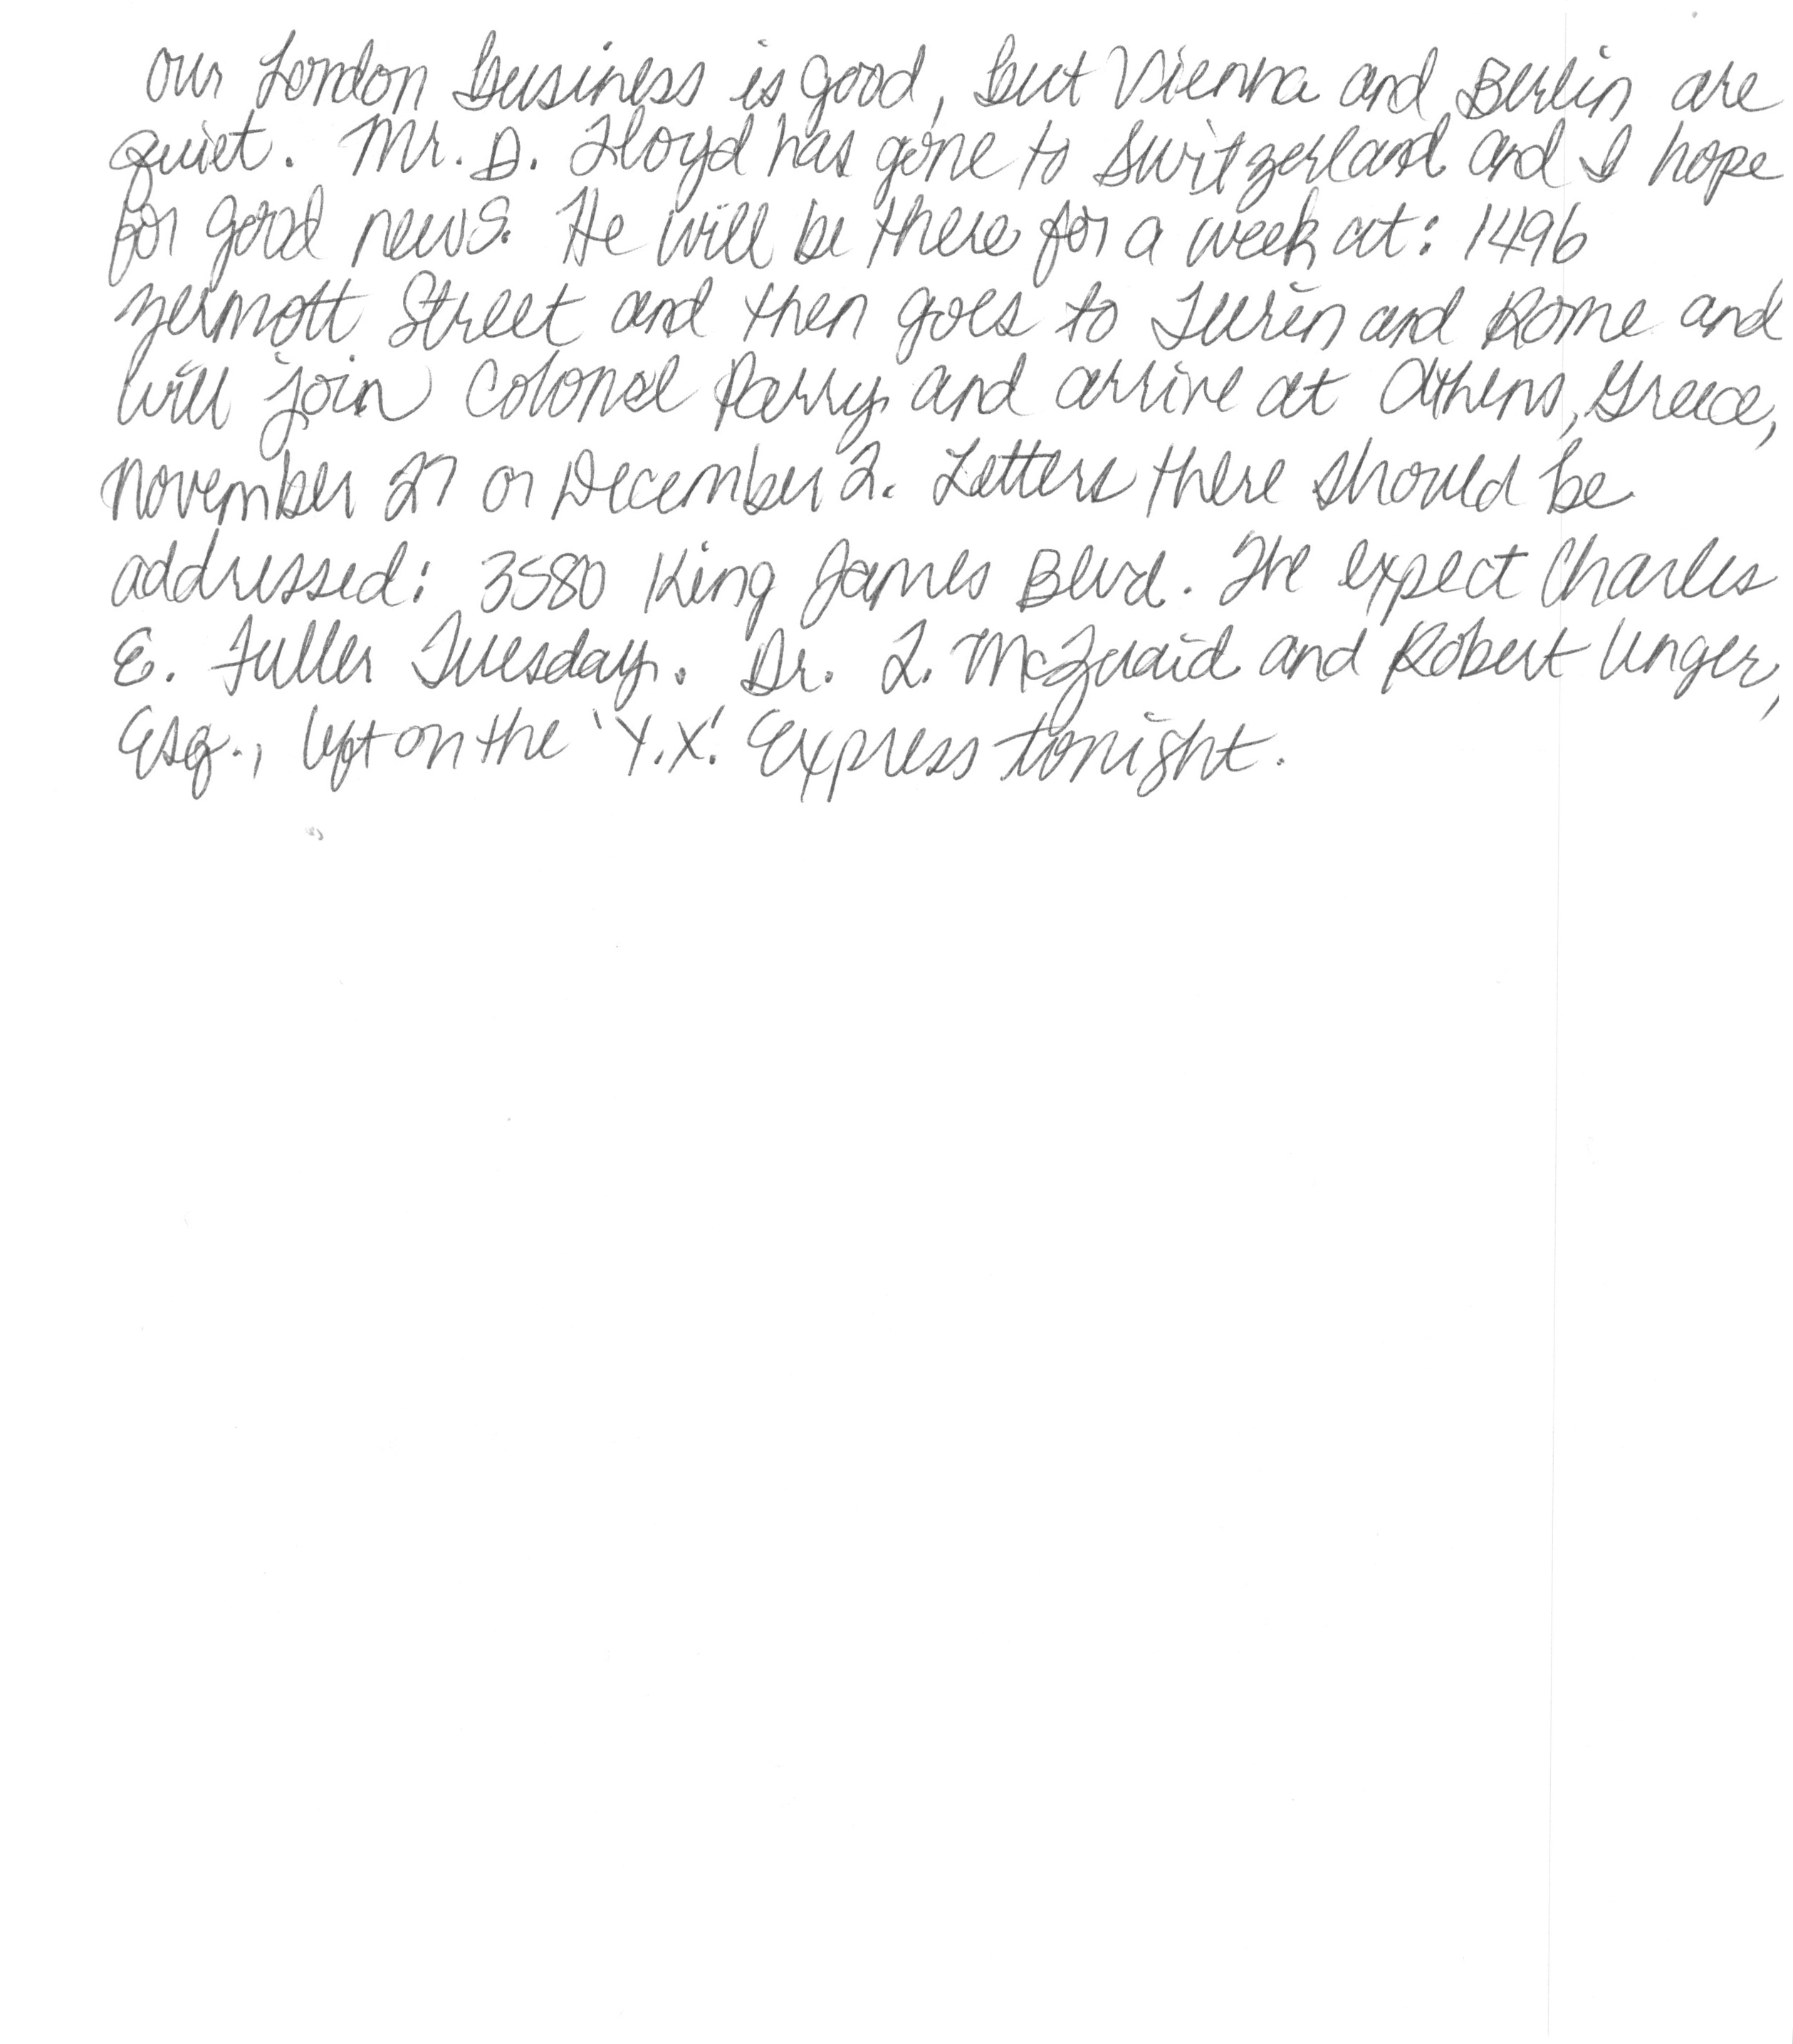 Our London business is good, but Vienna and Berlin are
quiet. Mr. D. Lloyd has gone to Switzerland and I hope
for good news. He will be there for a week at: 1496
Zermott Street and then goes to Turin and Rome and
will join Colonel Parry and arrive at Athens, Greece,
November 27 or December 2. Letters there should be
addressed: 3580 King James Blvd. We expect Charles
E. Fuller Tuesday. Dr. L. McQuaid and Robert Unger,
Esq., left on the 'Y.X.' Express tonight.